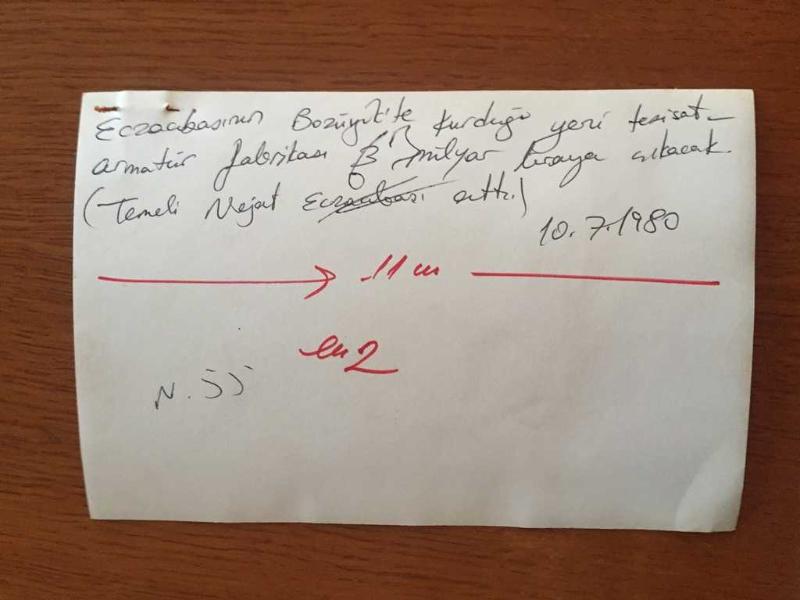 Eczacıbaşının Bozüyük'te kurduğu yeni tesisat-
armatür fabrikası milyar liraya çıkacak.
(Temeli Nejat Eczacıbaşı attı.)
10.7.1980
11 cm